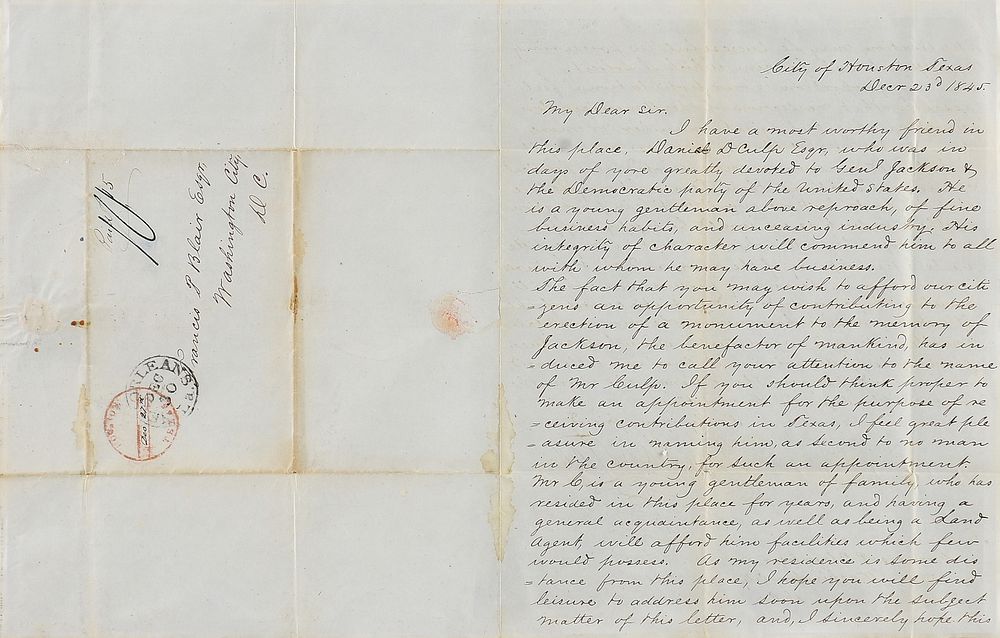 Paid
Francis P Blair Esqr,
Washington City,
D C.
ORLEANS
DEC
30
La.
City of Houston Texas
Decr 23d 1845.
My Dear Sir.
I have a most worthy friend in
this place, Daniel D Culp Esqr, who was in
days of yore greatly devoted to Genl Jackson &
the Democratic party of the United States. He
is a young gentleman above reproach, of fine
business habits, and unceasing industry. His
integrity of character will commend him to all
with whom he may have business.
The fact that you may wish to afford our citi
=zens an opportunity of contributing to the
erection of a monument to the memory of
Jackson, the benefactor of mankind, has in
=duced me to call your attention to the name
of Mr Culp. If you should think proper to
make an appointment for the purpose of re
=ceiving contributions in Texas, I feel great ple
=asure in naming him, as second to no man
in the country, for such an appointment.
Mr C, is a young gentleman of family, who has
resided in this place for years, and having a
general acquaintance, as well as being a Land
Agent, will afford him facilities which few
would possess. As my residence is some dis
=tance from this place, I hope you will find
leisure to address him soon upon the subject
matter of this letter, and, I sincerely hope this